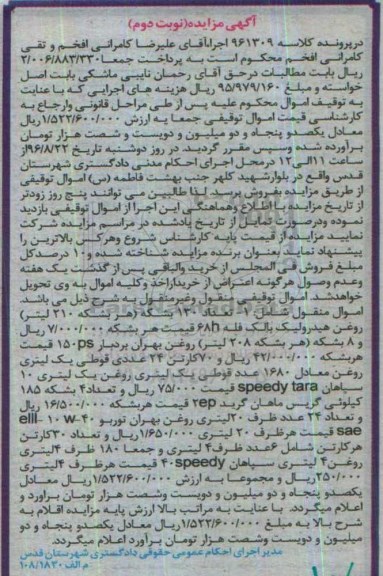 آگهی مزایده(نوبت دوم)
درپرونده کلاسه ۹۶۱۳۰۹ اجرا،آقای علیرضا کامرانی افخم و تقی
کامرانی افخم محکوم است به پرداخت جمعا۲/۰۰۶/۸۸۳/۳۳۰
ریال بابت مطالبات درحق آقای رحمان نایبی مانکی بابت اصل
خواسته و مبلغ ۹۵/۹۷۹/۱۶۰ ریال هزینه های اجرایی که با عنایت
به توقیف اموال محکوم علیه پس از طی مراحل قانونی وارجاع به
کارشناسی قیمت اموال توقیفی جمعا به ارزش ۱/۵۲۲/۶۰۰/۰۰۰ریال
معادل یکصدو پنجاه و دو میلیون و دویست و شصت هزار تومان
برآورده شده وسپس مقرر گردید. در روز دوشنبه تاریخ ۹۶/۸/۲۲از
ساعت ۱۱الی۱۲ درمحل اجرای احکام مدنی دادگستری شهرستان
قدس واقع در بلوارشهید کلهر جنب بهشت فاطمه (س) اموال توقیفی
از طریق مزایده بفروش برسد. لذا طالبین می توانند پنج روز زودتر
از تاریخ مزایده با اطلاع وهماهنگی این اجرا از اموال توقیفی بازدید
نموده ودرصورت تمایل از تاریخ یادشده در مراسم مزایده شرکت
نمایند مزایده از قیمت پایه کارشناس شروع وهرکس بالاترین را
پیشنهاد نماید بعنوان برنده مزایده شناخته شده و۱۰ درصدکل
مبلغ فروش فی المجلس از خرید والباقی پس از گذشت یک هفته
وعدم وصول هرگونه اعتراض از خریداراخذ وکلیه اموال به وی تحویل
خواهدشد. اموال توقیفی منقول وغیرمنقول به شرح ذیل می باشد
اموال منقول شامل ۱- تعداد ۱۳۰ بشکه (هر بشکه ۲۱۰ لیتر)
روغن هیدرولیک بالک فله ۶۸h قیمت هر بشکه ۷/۰۰۰/۰۰۰ ریال
و ۸ بشکه (هر بشکه ۲۰۸ لیتر) روغن بهران بردبار ۱۵۰ps قیمت
هربشکه ۴۲/۰۰۰/۰۰۰ ریال و ۷۰کارتن ۲۴ عددی قوطی یک لیتری
روغن معادل ۱۶۸۰ عدد قوطی یک لیتری روغن یک لیتری ۱۰
سپاهان speedy tara قیمت ۷۵/۰۰۰ ریال و تعداد۴ بشکه ۱۸۵
کیلوئی گریس ماهان گرید rep۲ قیمت هربشکه ۱۶/۵۰۰/۰۰۰ ریال
و تعداد ۲۴ عدد ظرف ۲۰لیتری روغن بهران توربو ۴۰-ell۱- ۱۰ w
sae قیمت هرظرف ۲۰ لیتری ۱/۶۵۰/۰۰۰ریال و تعداد ۳۰کارتن
هرکارتن شامل ۶عدد ظرف۴ لیتری و جمعا ۱۸۰ ظرف ۴لیتری
روغن۴ لیتری سپاهان speedy۴۰ قیمت هرظرف ۴لیتری
۲۵۰/۰۰۰ریال و مجموعا به ارزش ۱/۵۲۲/۶۰۰/۰۰۰ ریال معادل
یکصدو پنجاه و دو میلیون و دویست وشصت هزار تومان براورد و
اعلام میگردد. با عنایت به مراتب بالا ارزش پایه مزایده اقلام به
شرح بالا به مبلغ ۱/۵۲۲/۶۰۰/۰۰۰ریال معادل یکصدو پنجاه و دو
میلیون و دویست وشصت هزار تومان برآورد اعلام میگردد.
مدیر اجرای احکام عمومی حقوقی دادگستری شهرستان قدس
م الف ۱۰۸/۱۸۳۰